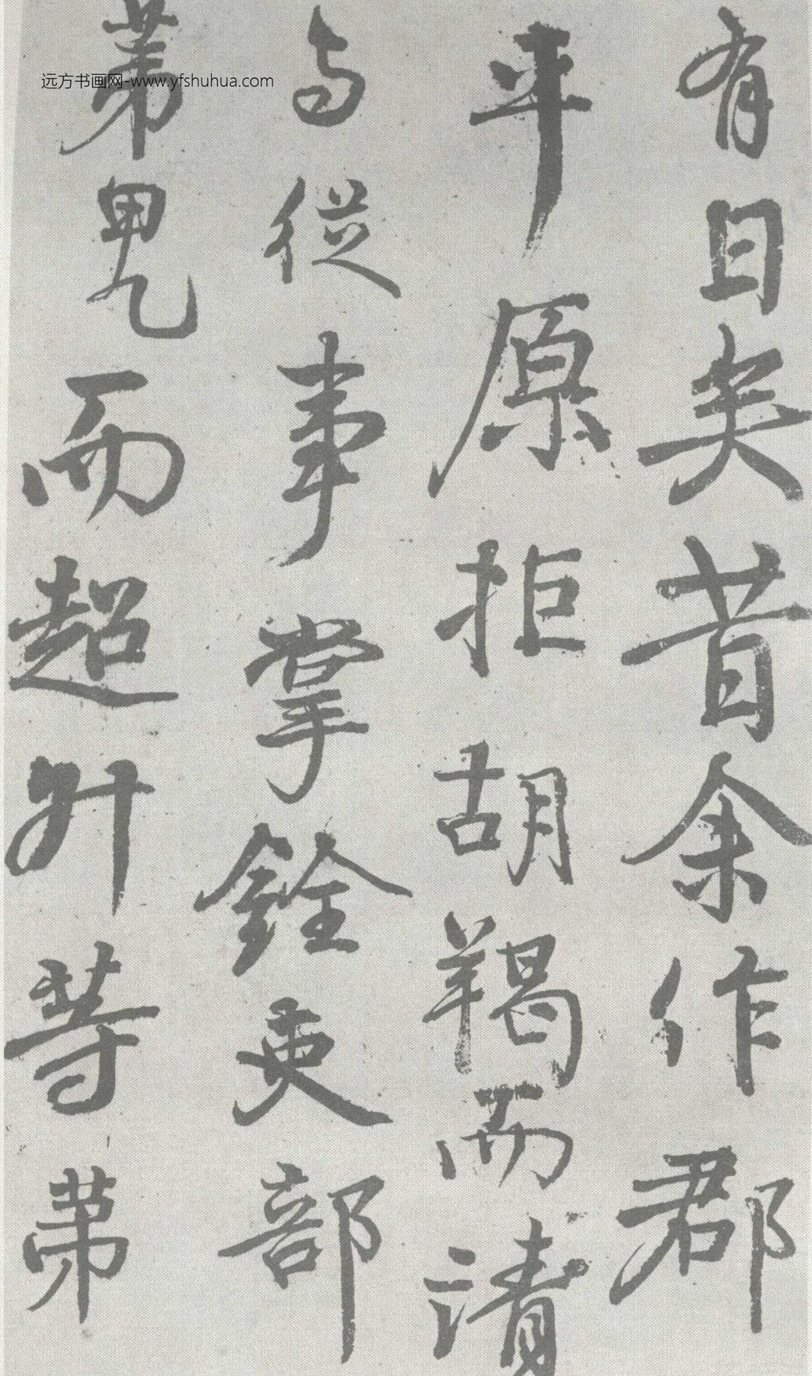 有日矣昔余作郡
平原拒胡羯而請
与從事掌銓吏部
苐甲乙而超升等苐
远方书画网-www.yfshuhua.com